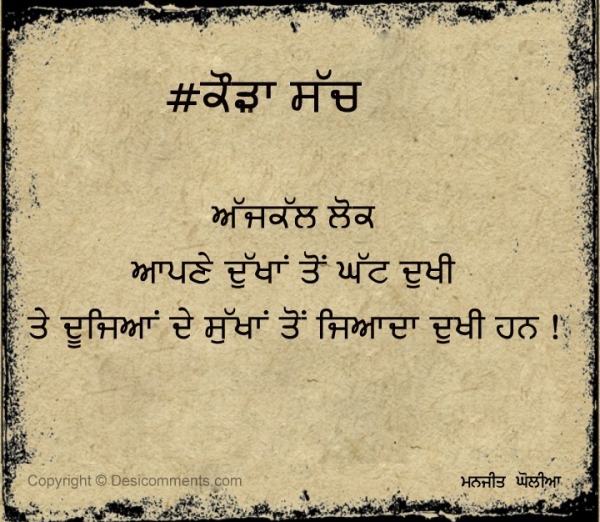 #ਕੌੜਾ ਸੱਚ
ਅੱਜਕੱਲ ਲੋਕ
ਆਪਣੇ ਦੁੱਖਾਂ ਤੋਂ ਘੱਟ ਦੁਖੀ
ਤੇ ਦੂਜਿਆਂ ਦੇ ਸੁੱਖਾਂ ਤੋਂ ਜਿਆਦਾ ਦੁਖੀ ਹਨ !
Copyright © Desicomments.com
ਮਨਜੀਤ ਘੋਲੀਆ